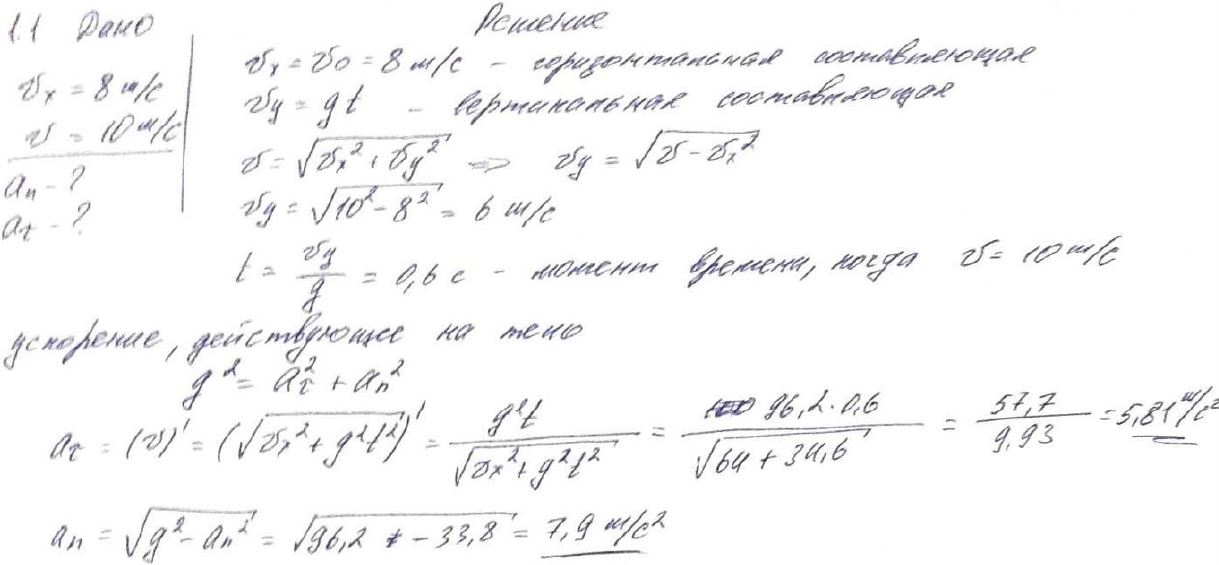 1.1 Дано
Решение
υx = 8 м/с
υ = 10 м/с
an - ?
aτ - ?
υx = υ0 = 8 м/с - горизонтальная составляющая
υy = gt - вертикальная составляющая
υ = √(υx² + υy²) ⇒ υy = √(υ - υx²)
υy = √(10² - 8²) = 6 м/с
t = υy/g = 0,6 с - момент времени, когда υ = 10 м/с
ускорение, действующее на тело
g² = aτ² + an²
aτ = (υ)' = (√(υx² + g²t²))' = g²t/√(υx² + g²t²) = 96,2·0,6/√(64 + 34,6) = 57,7/9,93 = 5,81 м/с²
an = √(g² - an²) = √(96,2 - 33,8) = 7,9 м/с²